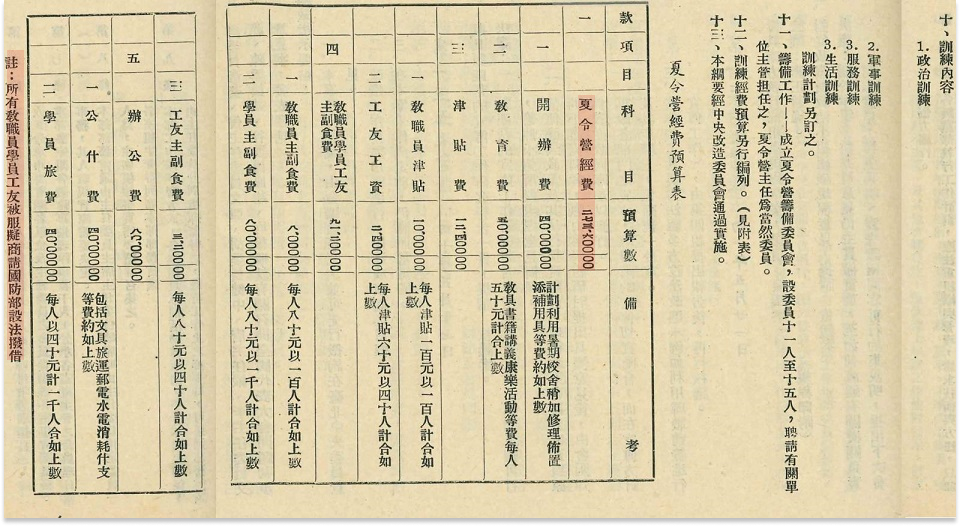 十、訓練內容
1. 政治訓練
2. 軍事訓練
3. 服務訓練
3. 生活訓練
訓練計劃另訂之。
十一、籌備工作——成立夏令營籌備委員會，設委員十一人至十五人，聘請有關單
位主管担任之，夏令營主任為當然委員。
十二、訓練經費預算另行編列。（見附表）
十三、本綱要經中央改造委員會通過實施。
夏令營經費預算表
款 項 目 科目 預算數 備考
一 夏令營經費 二七三,六〇〇〇〇
一 開辦費 四〇,〇〇〇〇〇 計劃利用暑期校舍稍加修理佈置
添補用具等費約如上數
二 教育費 五〇,〇〇〇〇〇 教具書籍講義康樂活動等費每人
五十元計合上數
三 津貼費 一二,四〇〇〇〇
一 教職員津貼 一〇,〇〇〇〇〇 每人津貼一百元以一百人計合如
上數
二 工友工資 二,四〇〇〇〇 每人津貼六十元以四十人計合如
上數
四 教職員學員工友
主副食費 九一,二〇〇〇〇
一 教職員主副食費 八,〇〇〇〇〇 每人八十元以一百人計合如上數
二 學員主副食費 八〇,〇〇〇〇〇 每人八十元以一千人計合如上數
三 工友主副食費 三,二〇〇〇〇 每人八十元以四十人計合如上數
五 辦公費 八〇,〇〇〇〇〇
一 公什費 四〇,〇〇〇〇〇 包括文具旅運郵電水電消耗什支
等費約如上數
二 學員旅費 四〇,〇〇〇〇〇 每人以四十元計一千人合如上數
註：所有教職員學員工友被服擬商請國防部設法撥借